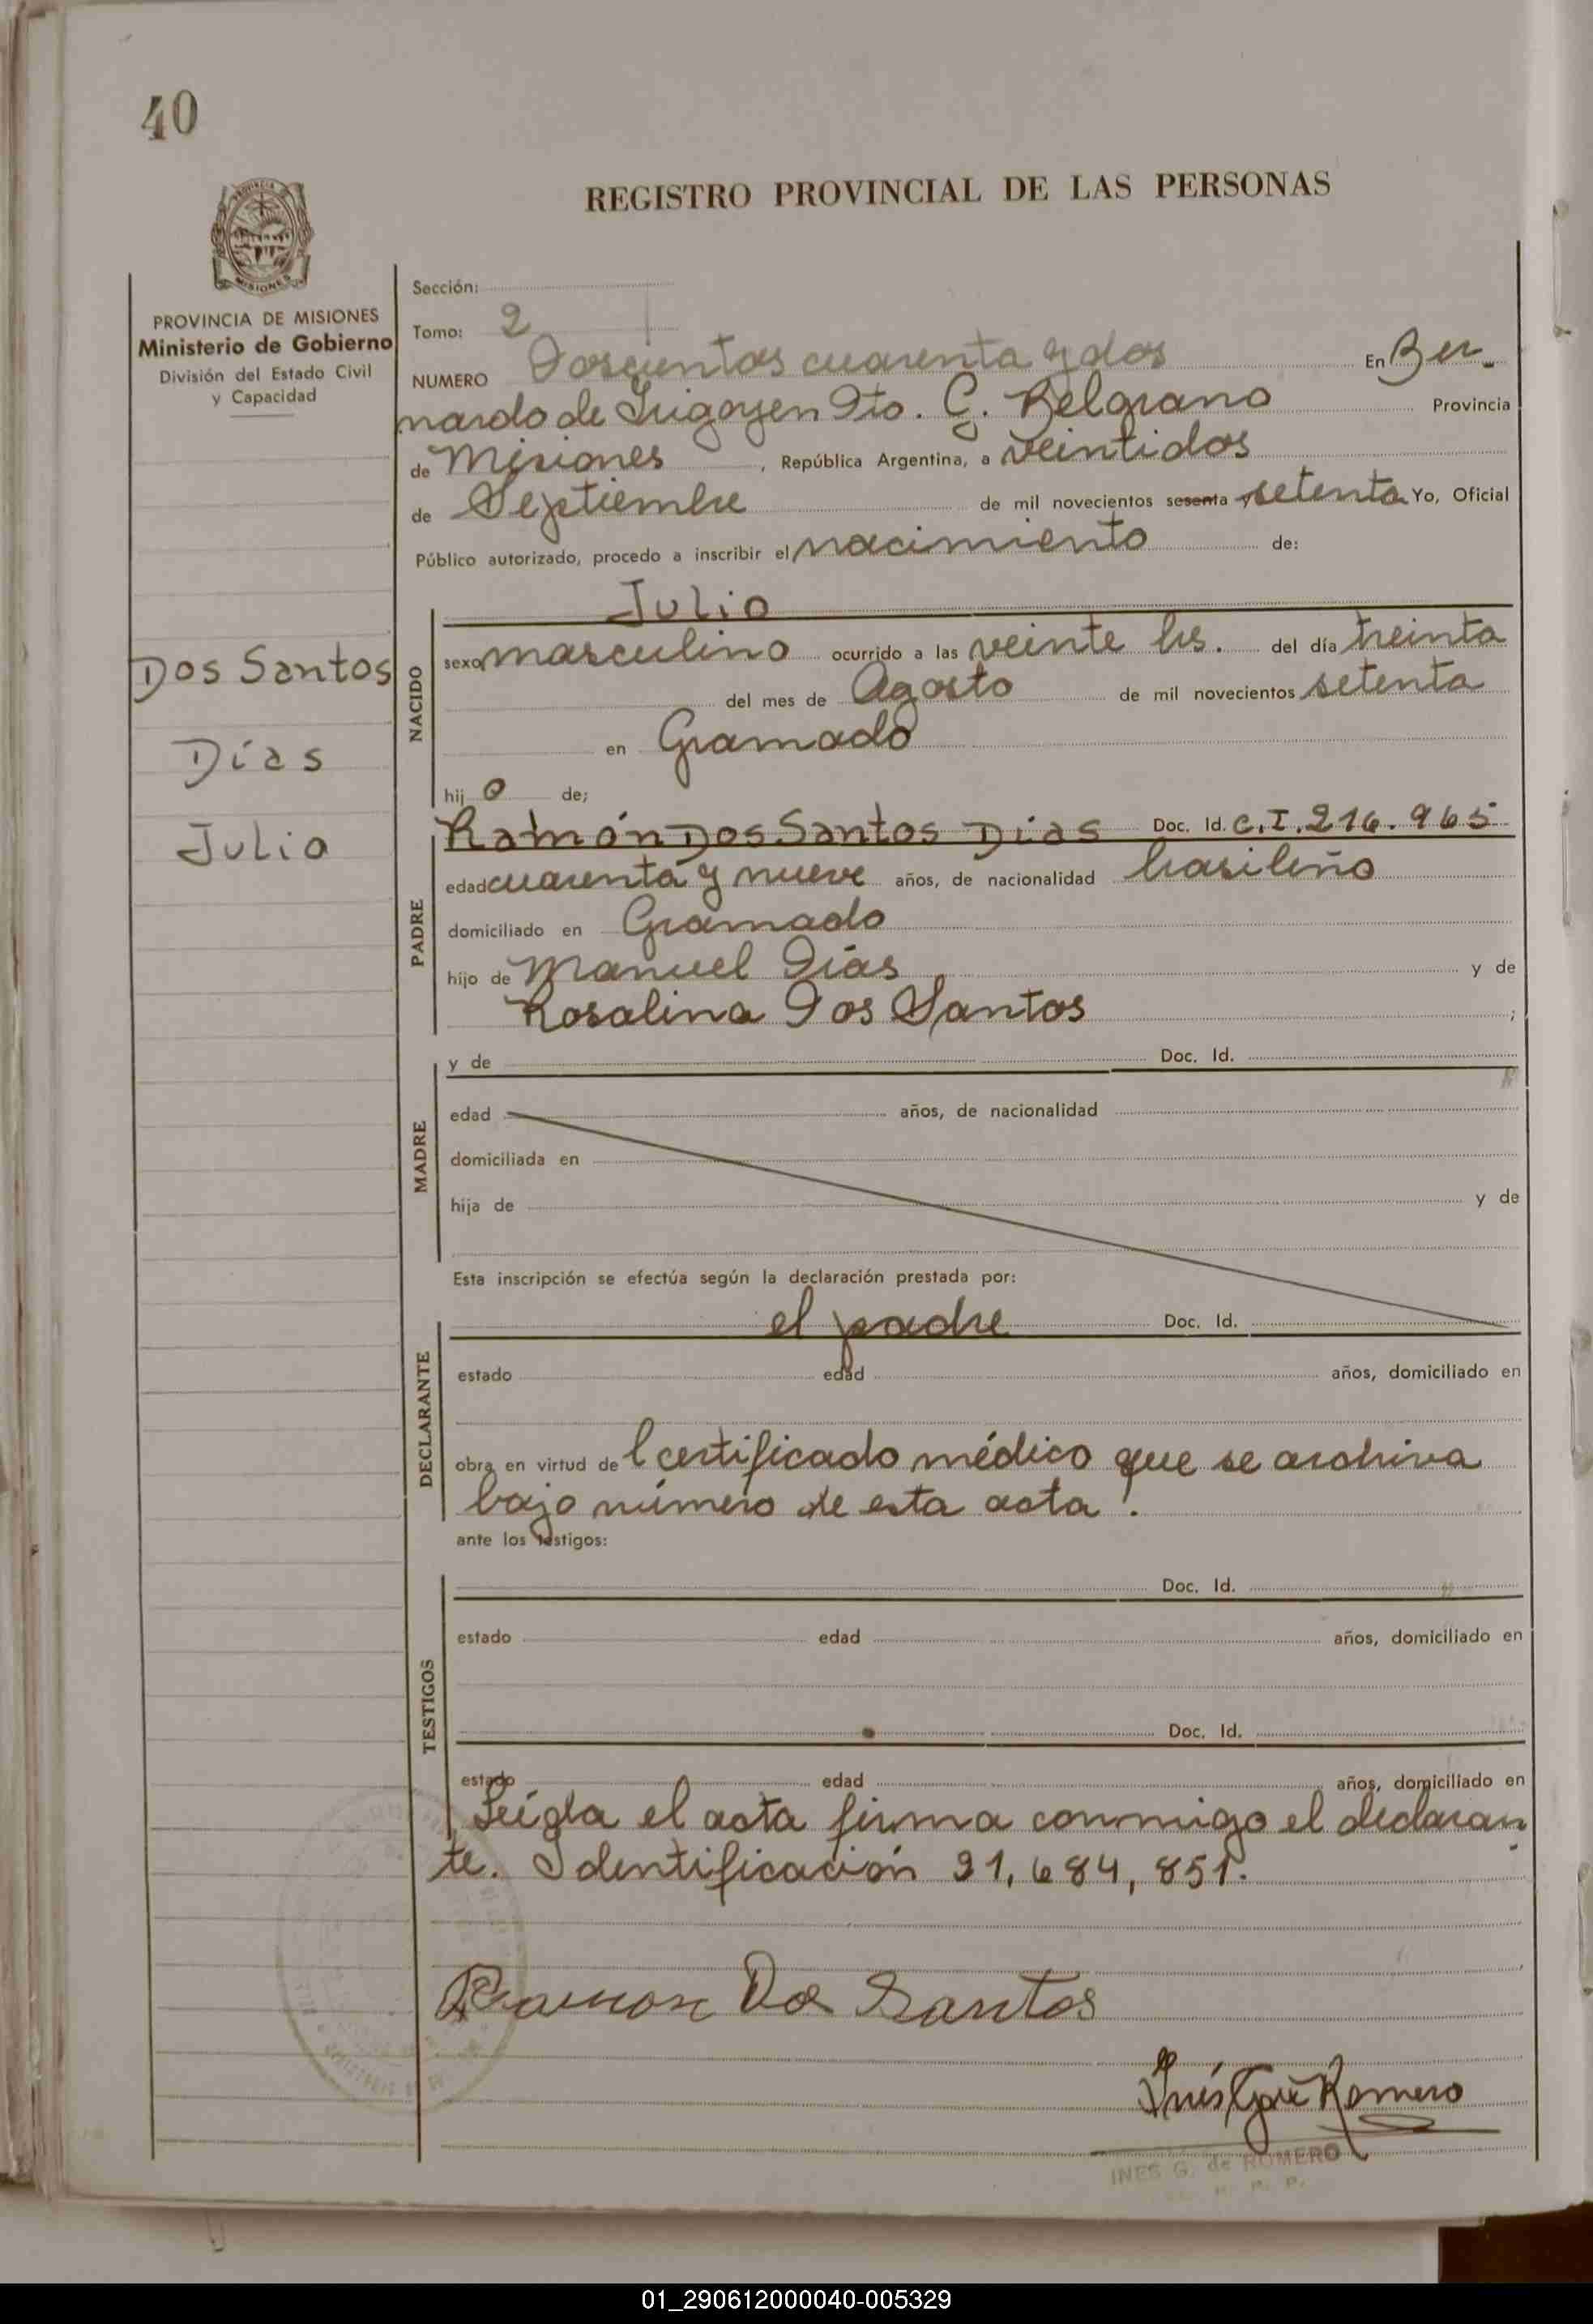 40
REGISTRO PROVINCIAL DE LAS PERSONAS
PROVINCIA DE MISIONES
Ministerio de Gobierno
División del Estado Civil
y Capacidad
Sección:
Tomo: 2
NUMERO Doscientos cuarenta y dos En Ber-
nardo de Irigoyen Dto. G. Belgrano Provincia
de Misiones, República Argentina, a veintidos
de Septiembre de mil novecientos sesenta y setenta Yo, Oficial
Público autorizado, procedo a inscribir el nacimiento de:
Julio
NACIDO
sexo masculino ocurrido a las veinte hs. del día treinta
del mes de Agosto de mil novecientos setenta
en Gramado
hijo de;
Dos Santos
Días
Julio
PADRE
Ramón Dos Santos Dias Doc. Id. C.I. 216.965
edad cuarenta y nueve años, de nacionalidad brasileño
domiciliado en Gramado
hijo de Manuel Días y de
Rosalina Dos Santos ;
MADRE
y de Doc. Id.
edad años, de nacionalidad
domiciliada en
hija de y de
Esta inscripción se efectúa según la declaración prestada por:
DECLARANTE
el padre Doc. Id.
estado edad años, domiciliado en
obra en virtud del certificado médico que se archiva
bajo número de esta acta.
ante los testigos:
TESTIGOS
Doc. Id.
estado edad años, domiciliado en
Doc. Id.
estado edad años, domiciliado en
Leída el acta firma conmigo el declaran
te. Identificación 21,684,851.
Ramon Dos Santos
Inés Romero
INES G. de ROMERO
01_290612000040-005329